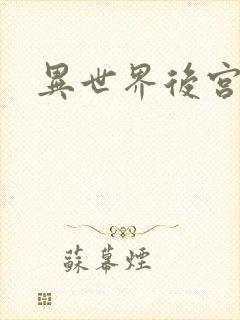 異世界後宮
蘇幕煙